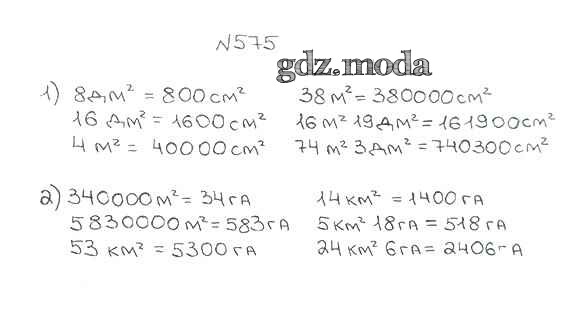 N575
gdz.moda
1) 8дм² = 800см²
16 дм² = 1600см²
4 м² = 40000см²
38 м² = 380000см²
16 м² 19дм² = 161900см²
74 м² 3дм² = 740300см²
2) 340000м² = 34га
5830000м² = 583га
53 км² = 5300га
14км² = 1400га
5км² 18га = 518га
24км² 6га = 2406га